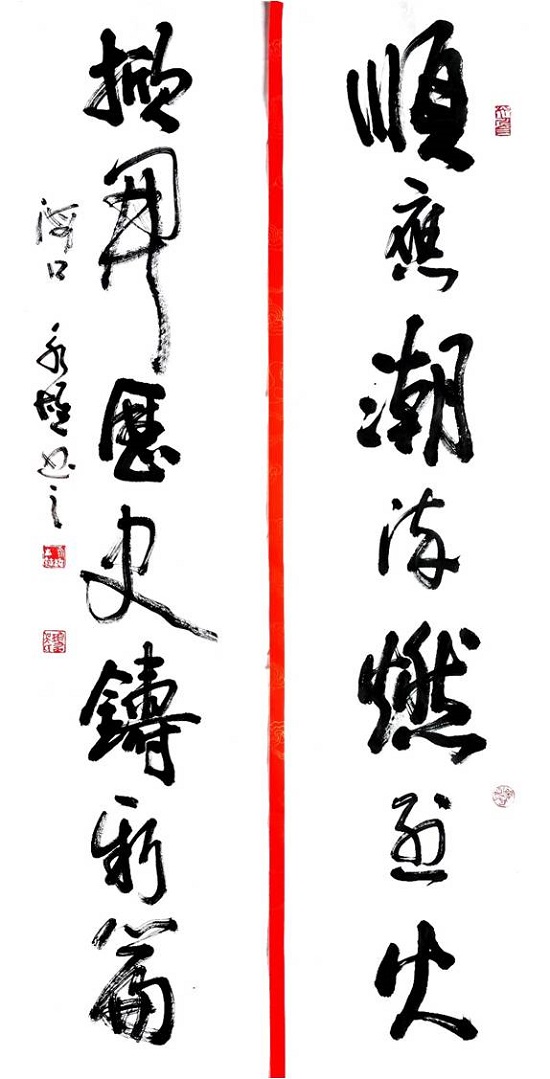 順應潮流燃烈火
掀開歷史鑄新篇
海口 永恒書